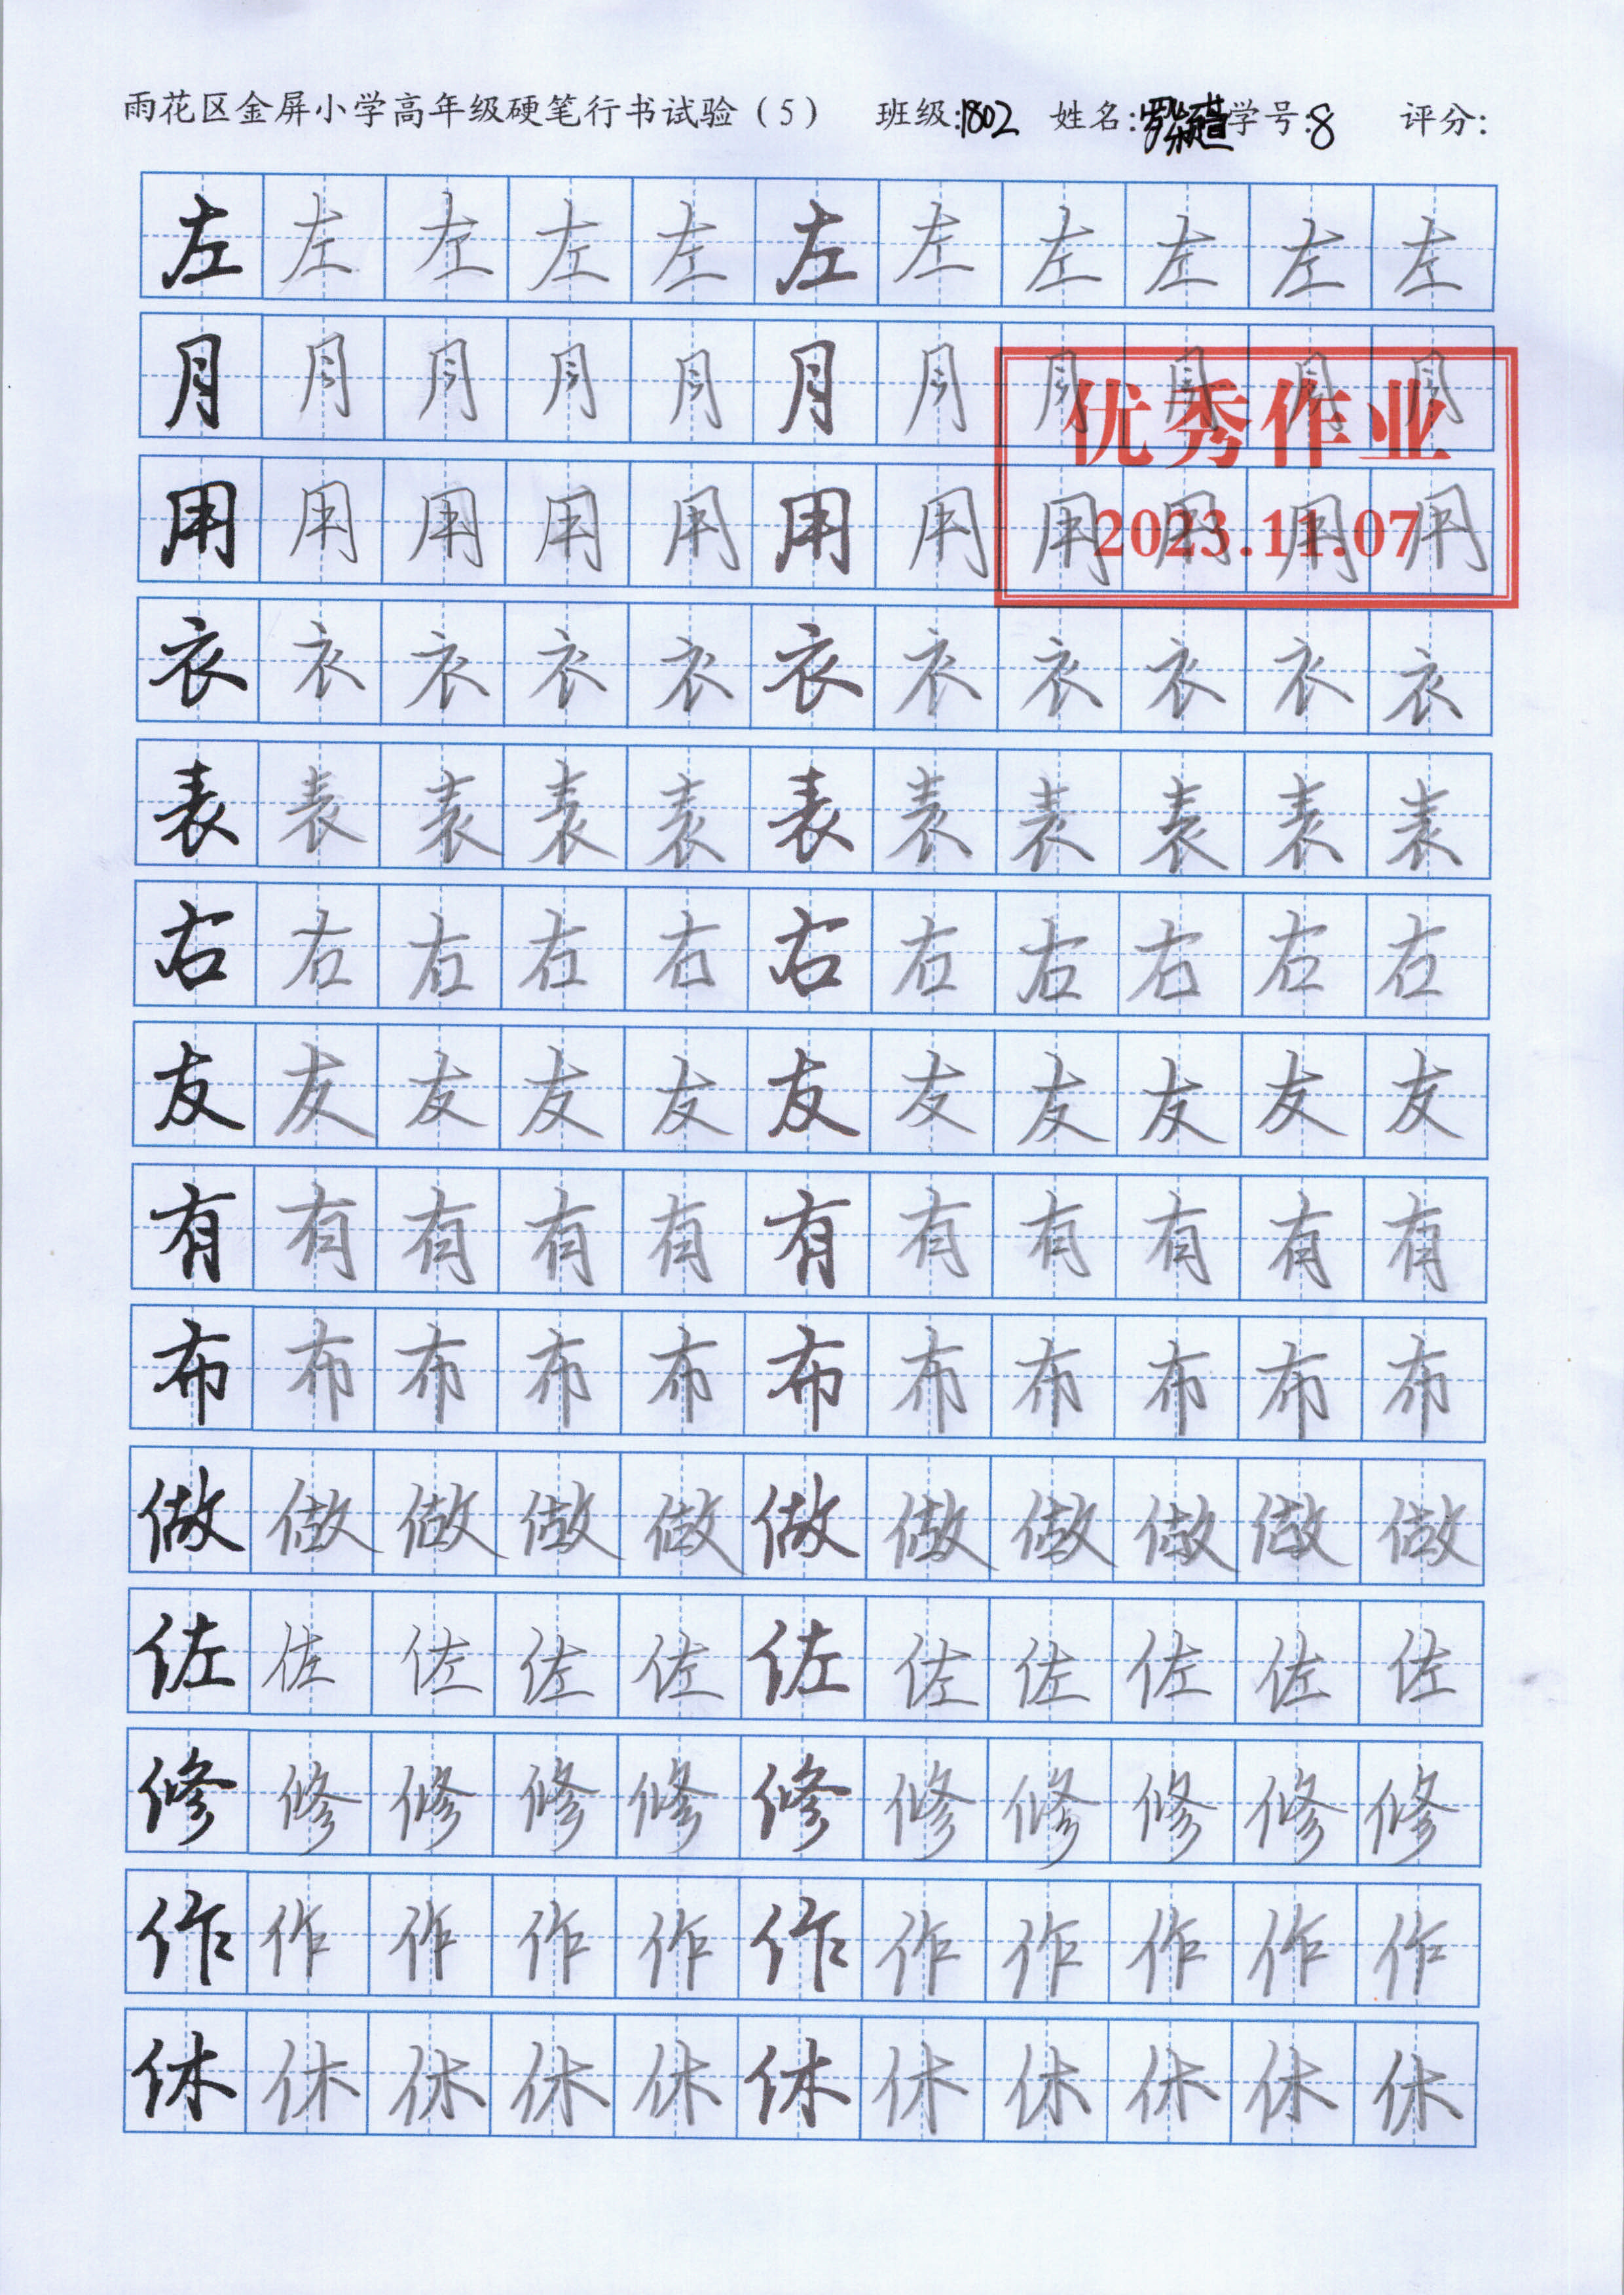 雨花区金屏小学高年级硬笔行书试验（5） 班级:1802 姓名: 学号:8 评分:
左左左左左左左左左左左
月月月月月月月月月月月
优秀作业
用用用用用用用用用用用
2023.11.07
衣衣衣衣衣衣衣衣衣衣衣
表表表表表表表表表表表
右右右右右右右右右右右
友友友友友友友友友友友
有有有有有有有有有有有
布布布布布布布布布布布
做做做做做做做做做做做
佐佐佐佐佐佐佐佐佐佐佐
修修修修修修修修修修修
作作作作作作作作作作作
休休休休休休休休休休休